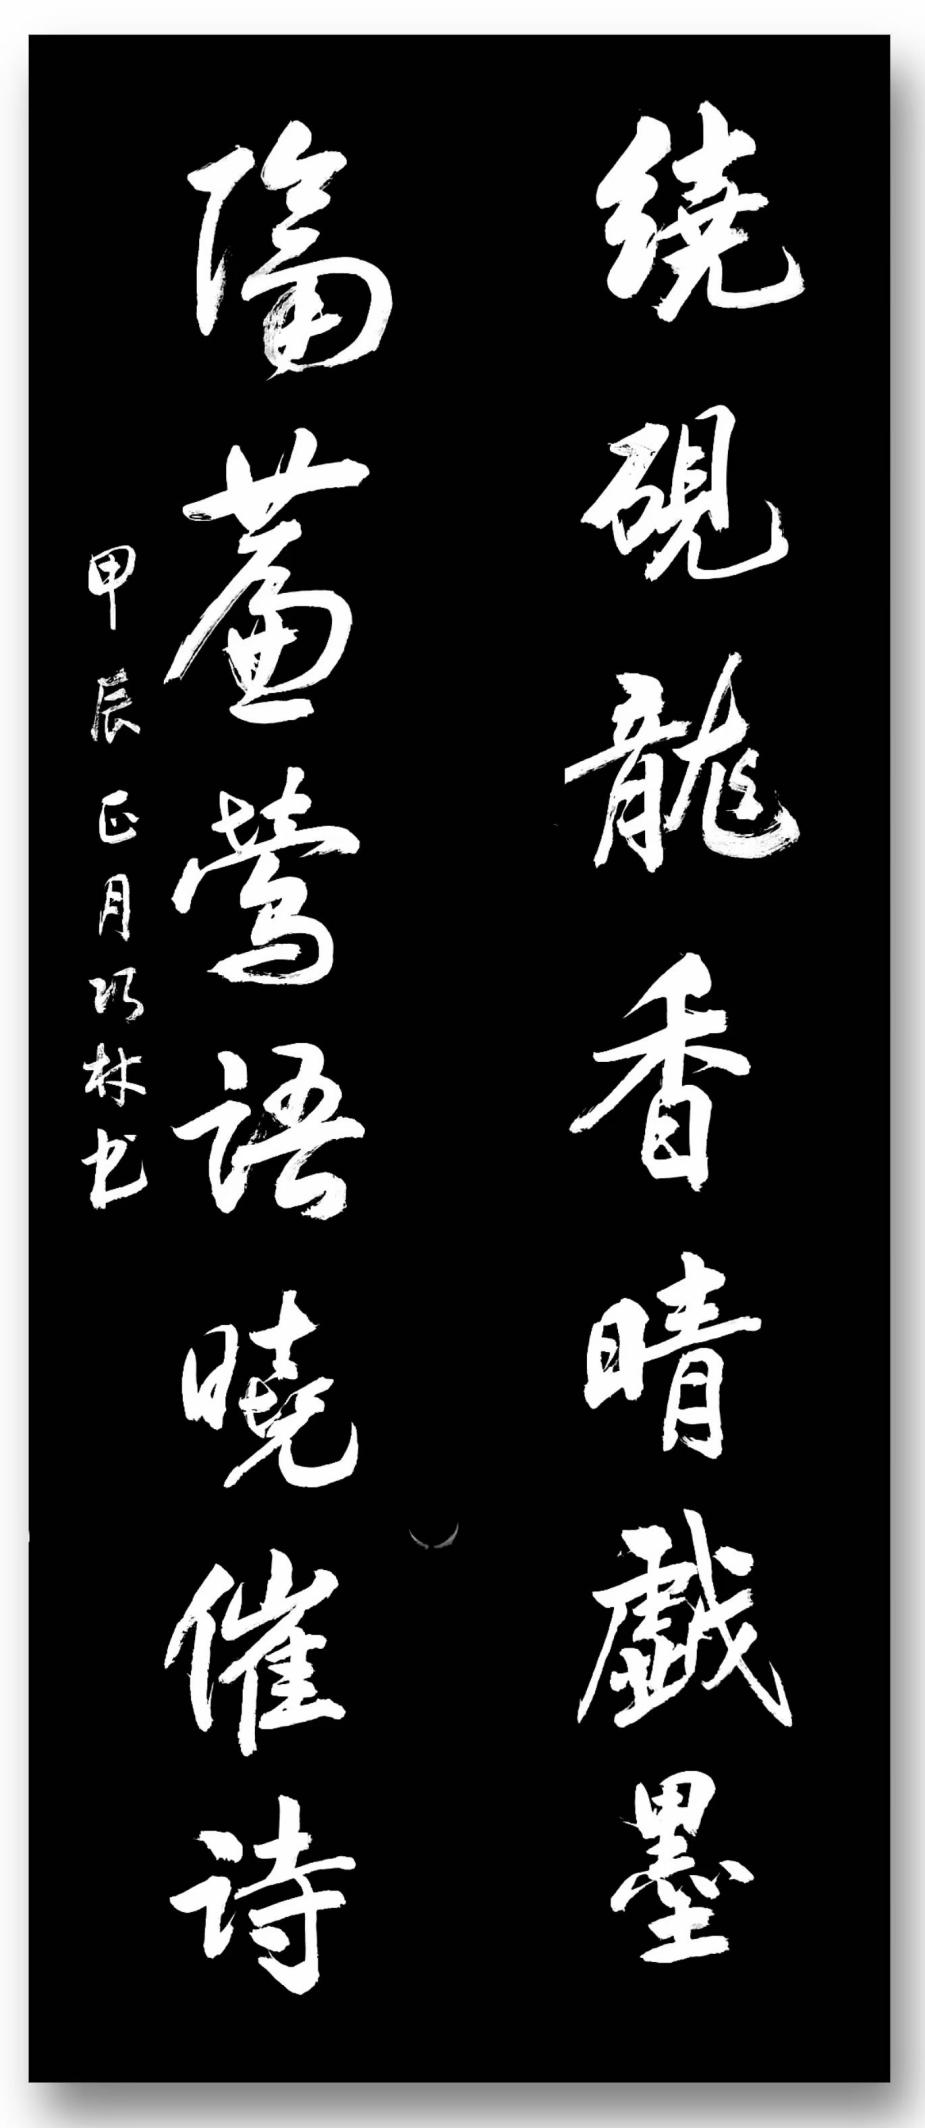 繞硯龍香晴戲墨
隔簾鶯語曉催詩
甲辰正月巧林书